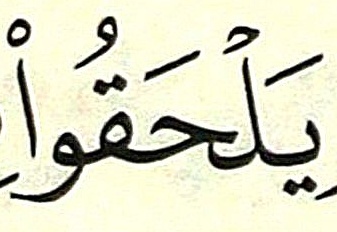 يَلۡحَقُواْ